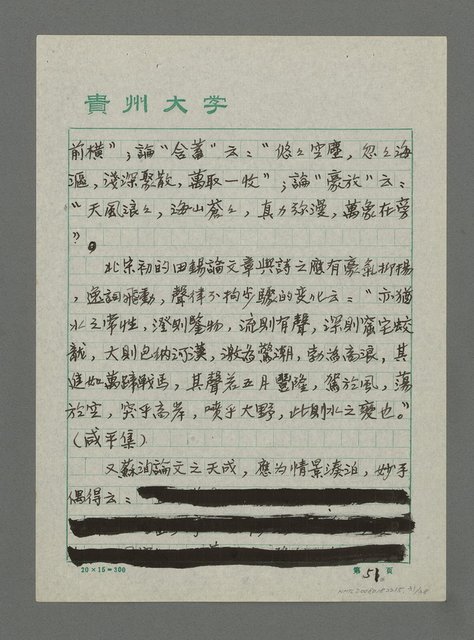 貴州大学
前橫”；論“含蓄”云：“悠々空塵，忽々海
漚，淺深聚散，萬取一收”；論“豪放”云：
“天風浪々，海山蒼々，真力弥漫，萬象在旁
”。
北宋初的田錫論文章與詩之應有豪氣抑揚
，逸詞驅動，聲律不拘步驟的变化云：“亦猶
水之常性，澄則鑒物，流則有聲，深則窟宅蛟
龍，大則包納河漢，激為驚潮，勃為高浪，其
進如萬蹄戰馬，其聲若五月豐隆，駕於風，蕩
於空，突乎高岸，噴乎大野，此則水之變也。”
（咸平集）
又蘇洵論文之天成，應为情景湊泊，妙手
偶得云：
20×15=300
第51頁